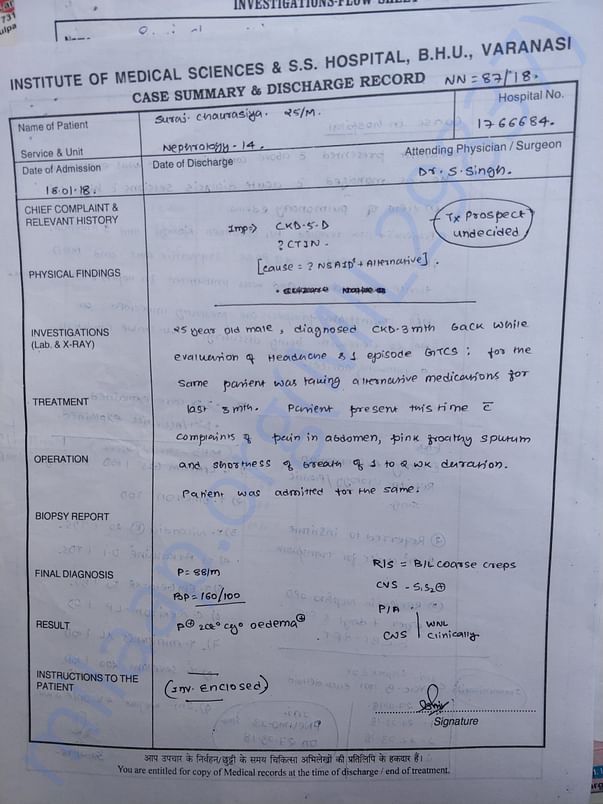 INVESTIGATIONS-FLOW SHEET
731
ulpa
INSTITUTE OF MEDICAL SCIENCES & S.S. HOSPITAL, B.H.U., VARANASI
CASE SUMMARY & DISCHARGE RECORD NN = 87/18.
Name of Patient Suraj Chaurasiya. 25/M. Hospital No.
1766684.
Service & Unit Nephrology - 14.
Date of Admission Date of Discharge Attending Physician / Surgeon
18.01.18. Dr. S. Singh.
CHIEF COMPLAINT &
RELEVANT HISTORY
Imp:> CKD-5-D Tx Prospect
? CTIN. undecided.
[cause = ? NSAIDs + Alternative].
PHYSICAL FINDINGS
INVESTIGATIONS
(Lab. & X-RAY)
25 year old male, diagnosed CKD-3mth back while
evaluation of Headache & 1 episode GTCS; for the
same patient was taking alternative medications for
TREATMENT last 3mth. Patient present this time c̅
complaints of pain in abdomen, pink froathy sputum
OPERATION and shortness of breath of 1 to 2 wk duration.
Patient was admitted for the same.
BIOPSY REPORT
FINAL DIAGNOSIS P= 88/m R/S = B/L coarse creps
BP= 160/100 CVS - S1S2⊕
P/A
RESULT P⊕ oedema⊕ CNS WNL clinically
INSTRUCTIONS TO THE
PATIENT
(Inv. Enclosed)
Signature
आप उपचार के निर्वहन/छुट्टी के समय चिकित्सा अभिलेखों की प्रतिलिपि के हकदार हैं।
You are entitled for copy of Medical records at the time of discharge / end of treatment.